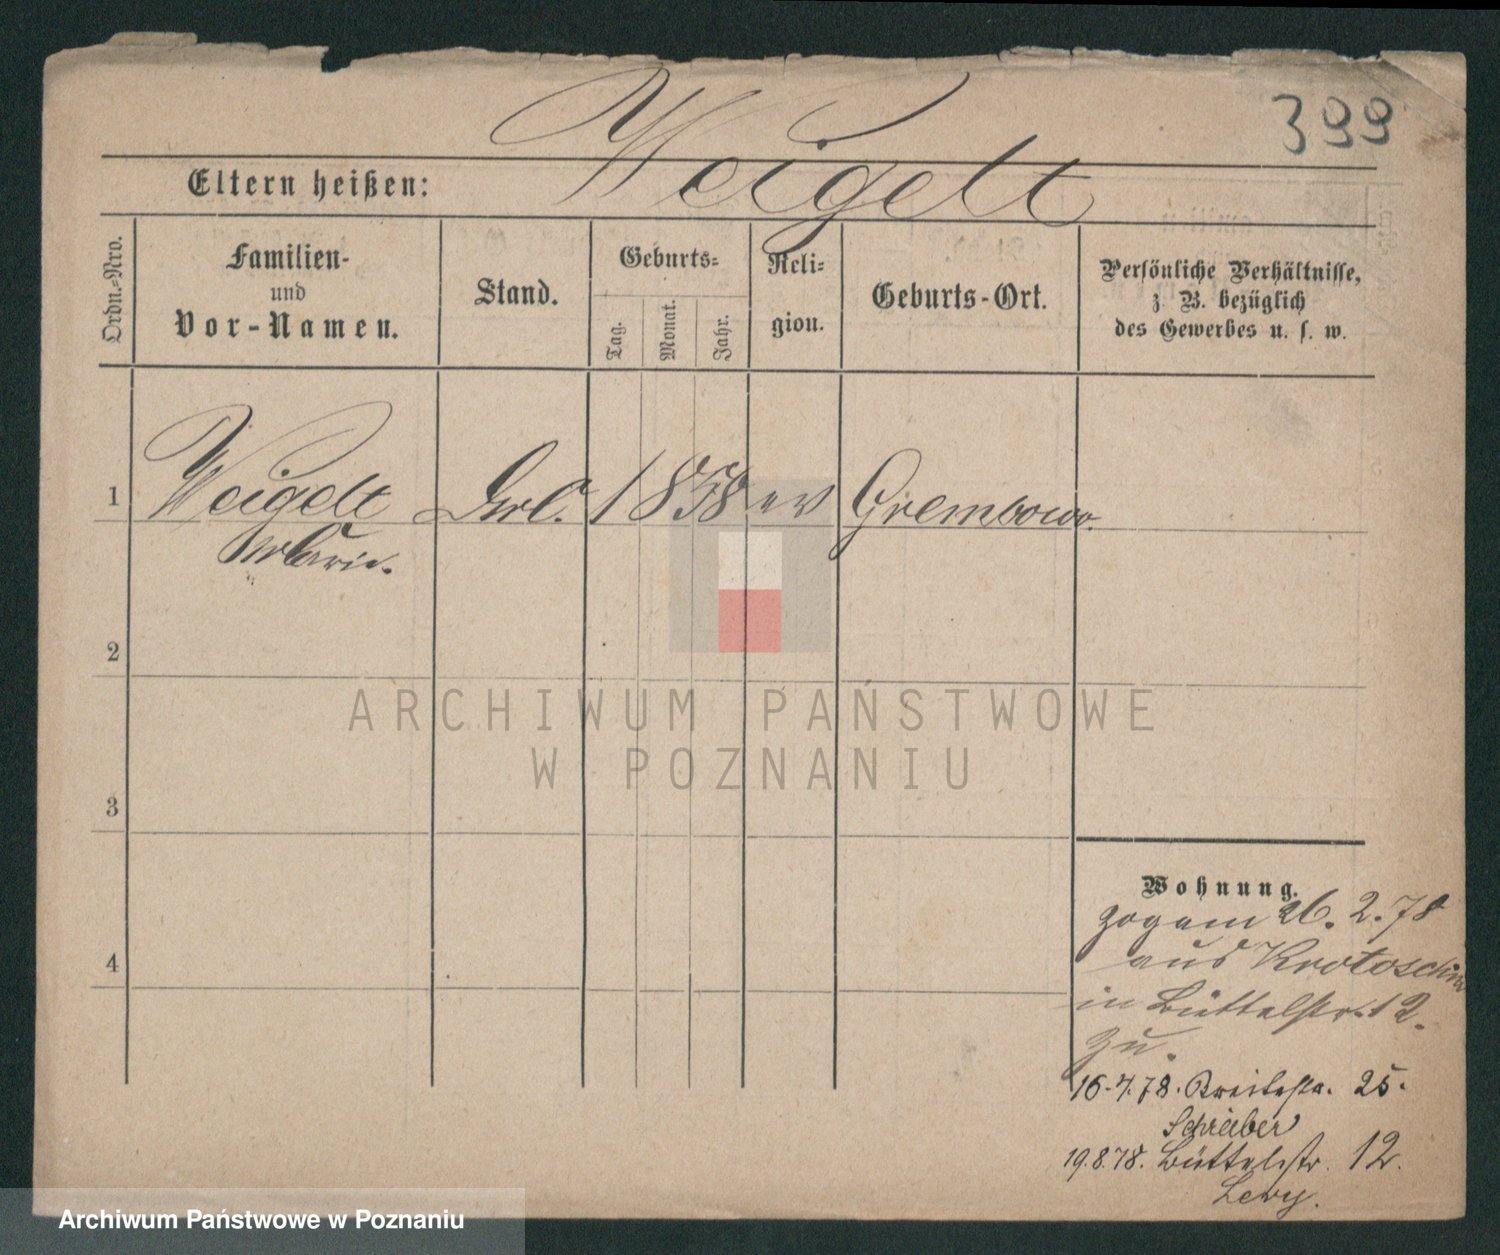 399
Weigelt
Eltern heißen:
Ordn.-Nro.
Familien-
und
Vor-Namen.
Stand.
Geburts-
Tag.
Monat.
Jahr.
Reli-
gion.
Geburts-Ort.
Persönliche Verhältnisse,
z. B. bezüglich
des Gewerbes u. s. w.
1 Weigelt 1858 ev Grembowo.
Marie.
2
3
4
ARCHIWUM PAŃSTWOWE
W POZNANIU
Wohnung.
zog am 26. 2. 78
aus Krotoschin
in Büttelstr. 12.
zu.
16.7.78. Breitestr. 25.
Schreiber
19.8.78. Büttelstr. 12.
Levy.
Archiwum Państwowe w Poznaniu